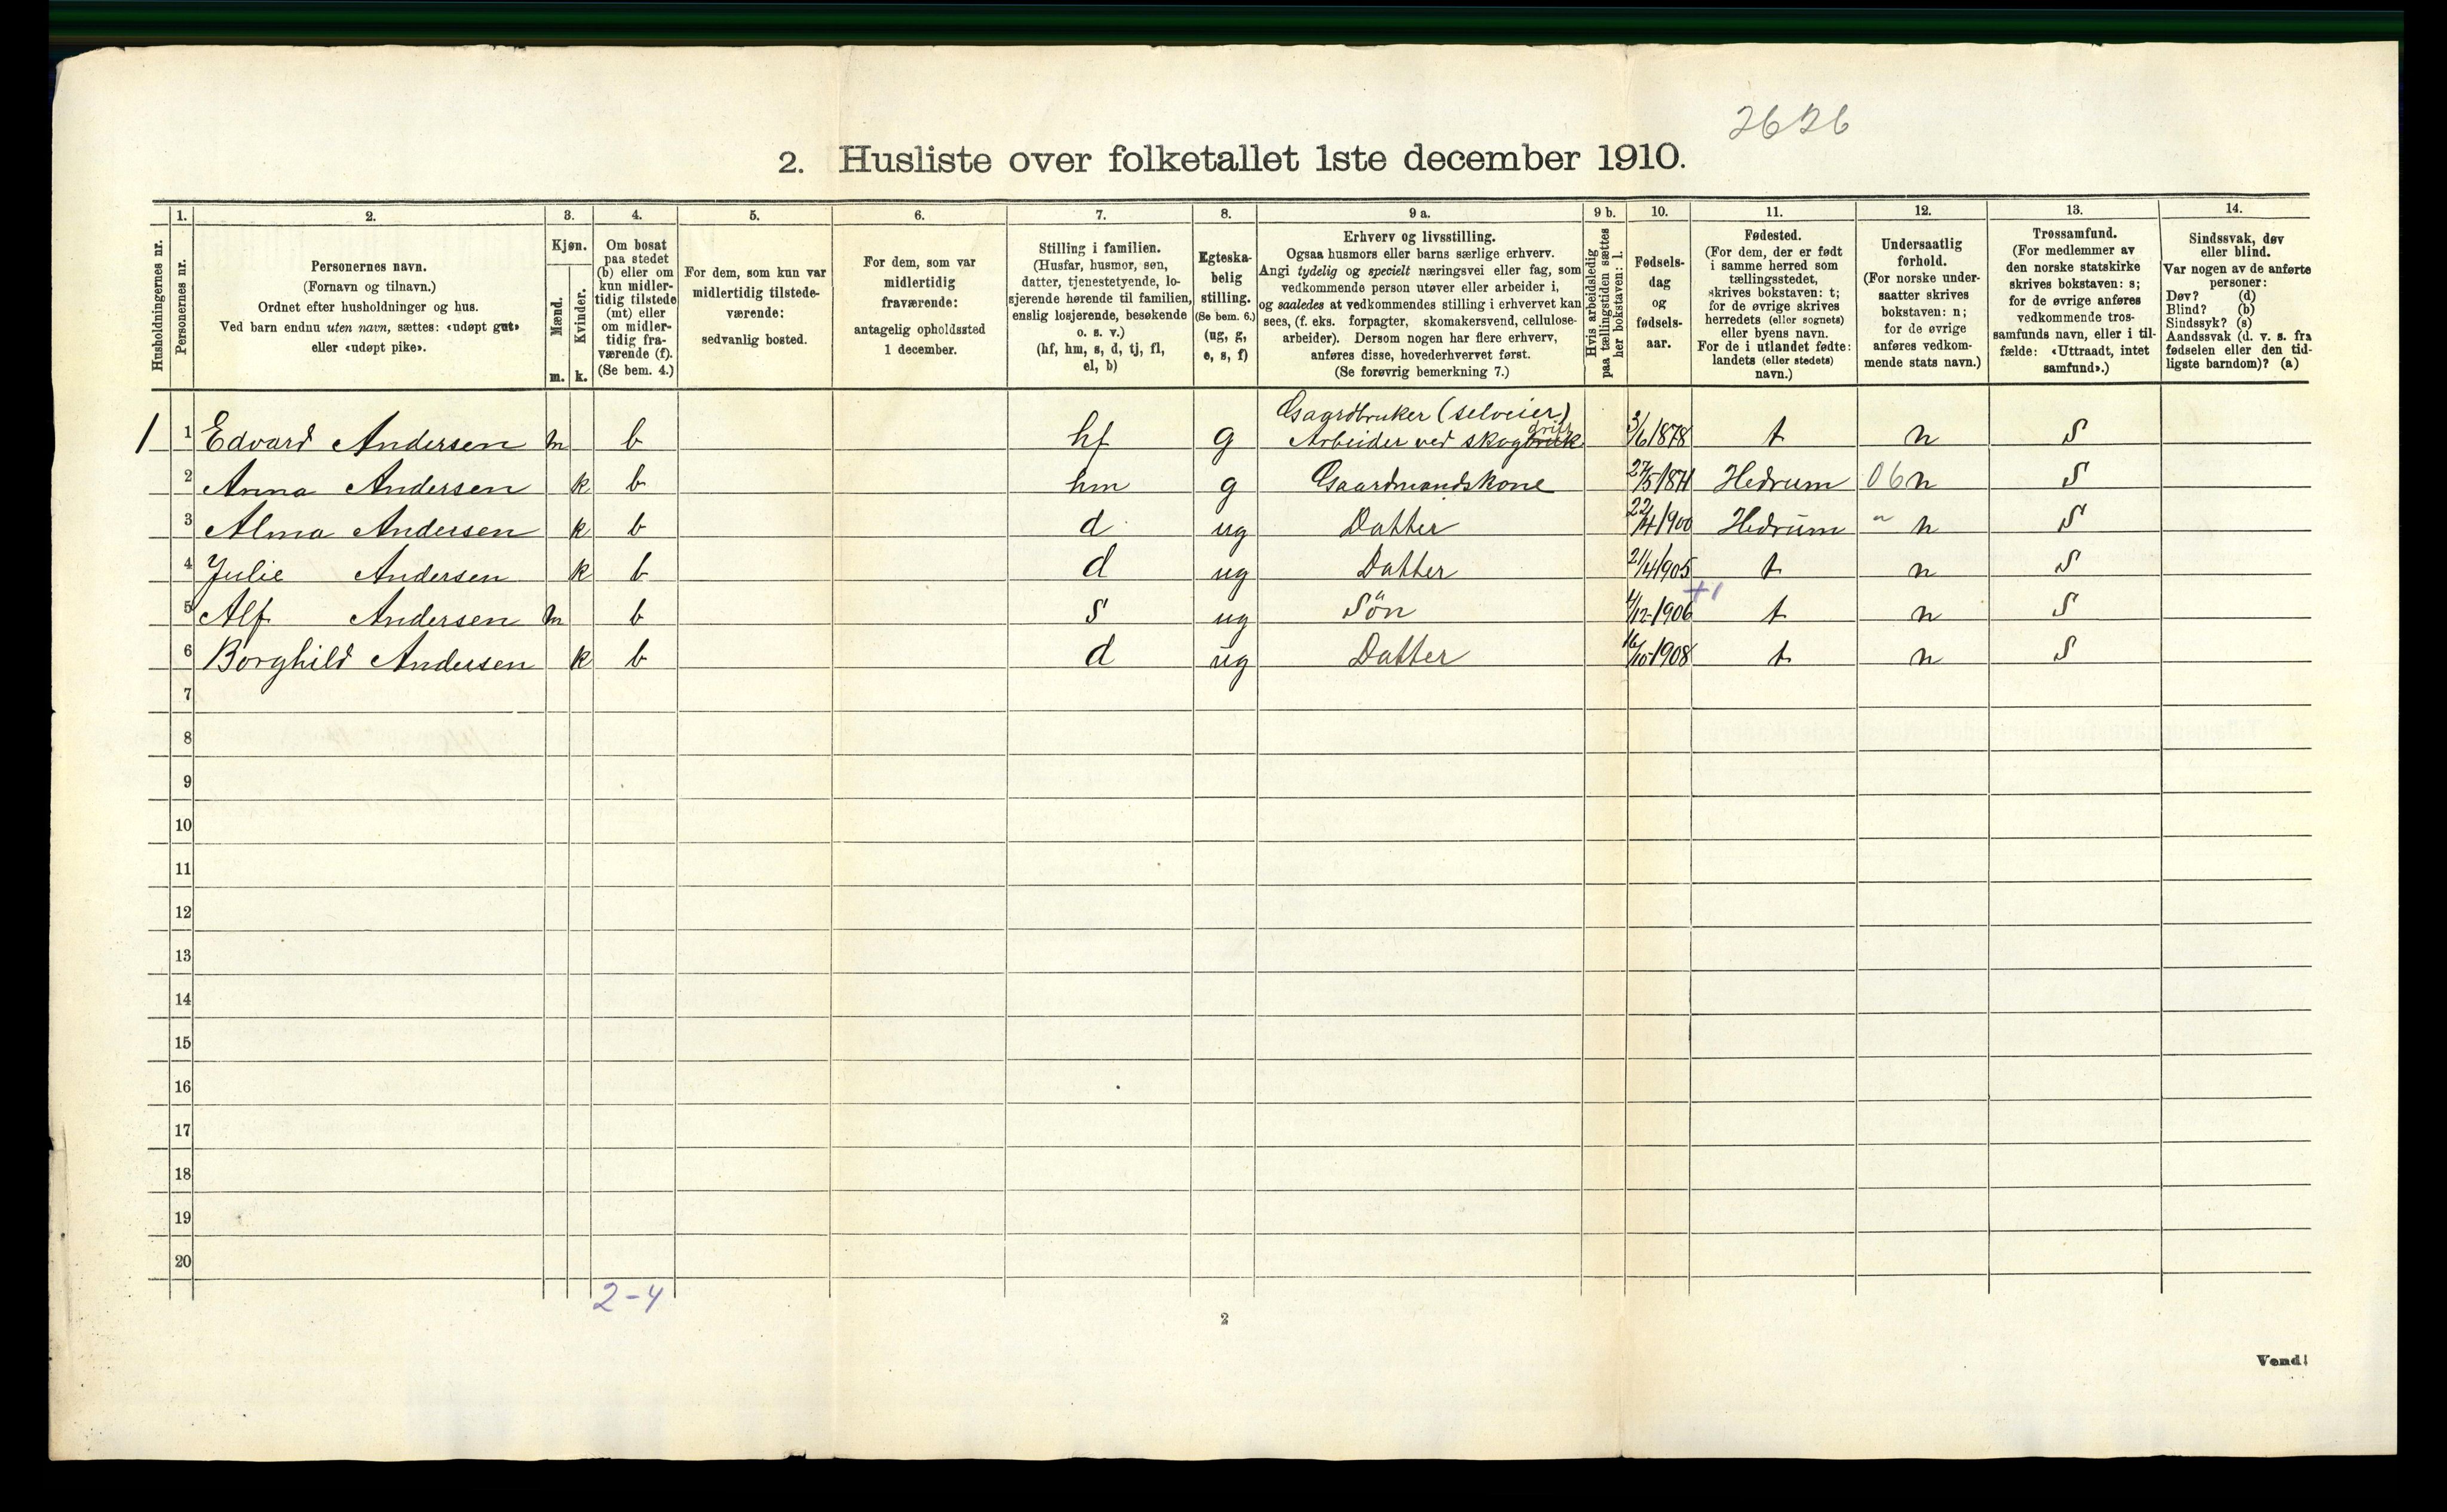 2626
2. Husliste over folketallet 1ste december 1910.
Husholdningernes nr.
1.
Personernes nr.
2.
Personernes navn.
(Fornavn og tilnavn.)
Ordnet efter husholdninger og hus.
Ved barn endnu uten navn, sættes: «udøpt gut»
eller «udøpt pike».
3.
Kjøn.
Mænd.
m.
Kvinder.
k.
4.
Om bosat
paa stedet
(b) eller om
kun midler-
tidig tilstede
(mt) eller
om midler-
tidig fra-
værende (f).
(Se bem. 4.)
5.
For dem, som kun var
midlertidig tilstede-
værende:
sedvanlig bosted.
6.
For dem, som var
midlertidig
fraværende:
antagelig opholdssted
1 december.
7.
Stilling i familien.
(Husfar, husmor, søn,
datter, tjenestetyende, lo-
sjerende hørende til familien,
enslig losjerende, besøkende
o. s. v.)
(hf, hm, s, d, tj, fl,
el, b)
8.
Egteska-
belig
stilling.
(Se bem. 6.)
(ug, g,
e, s, f)
9 a.
Erhverv og livsstilling.
Ogsaa husmors eller barns særlige erhverv.
Angi tydelig og specielt næringsvei eller fag, som
vedkommende person utøver eller arbeider i,
og saaledes at vedkommendes stilling i erhvervet kan
sees, (f. eks. forpagter, skomakersvend, cellulose-
arbeider). Dersom nogen har flere erhverv,
anføres disse, hovederhvervet først.
(Se forøvrig bemerkning 7.)
9 b.
Hvis arbeidsledig
paa tællingstiden sættes
her bokstaven: l.
10.
Fødsels-
dag
og
fødsels-
aar.
11.
Fødested.
(For dem, der er født
i samme herred som
tællingsstedet,
skrives bokstaven: t;
for de øvrige skrives
herredets (eller sognets)
eller byens navn.
For de i utlandet fødte:
landets (eller stedets)
navn.)
12.
Undersaatlig
forhold.
(For norske under-
saatter skrives
bokstaven: n;
for de øvrige
anføres vedkom-
mende stats navn.)
13.
Trossamfund.
(For medlemmer av
den norske statskirke
skrives bokstaven: s;
for de øvrige anføres
vedkommende tros-
samfunds navn, eller i til-
fælde: «Uttraadt, intet
samfund».)
14.
Sindssvak, døv
eller blind.
Var nogen av de anførte
personer:
Døv? (d)
Blind? (b)
Sindssyk? (s)
Aandssvak (d. v. s. fra
fødselen eller den tid-
ligste barndom)? (a)
Gaardbruker (selveier)
drift
1 1 Edvard Andersen m b hf g Arbeider ved skogbruk 3/6 1878 t n S
2 Anna Andersen k b hm g Gaardmandskone 27/5 1871 Hedrum 06 n S
3 Alma Andersen k b d ug Datter 22/4 1900 Hedrum " n S
4 Julie Andersen k b d ug Datter 21/4 1905 t n S
+1
5 Alf Andersen m b s ug Sön 4/12-1906 t n S
6 Borghild Andersen k b d ug Datter 16/10-1908 t n S
7
8
9
10
11
12
13
14
15
16
17
18
19
20
2-4
2
Vend!